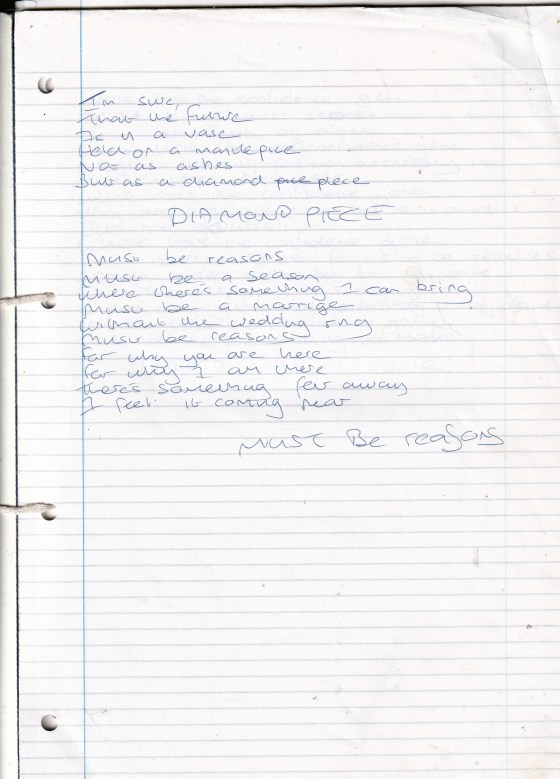 I'm sure,
That the future
Is in a vase
Held on a mantlepice
Not as ashes
But as a diamond piece
DIAMOND PIECE
Must be reasons
Must be a season
Where there's something I can bring
Must be a marrige
Without the wedding ring
Must be reasons
For why you are here
For why I am there
There's something far away
I feel it coming near
MUST Be reasons